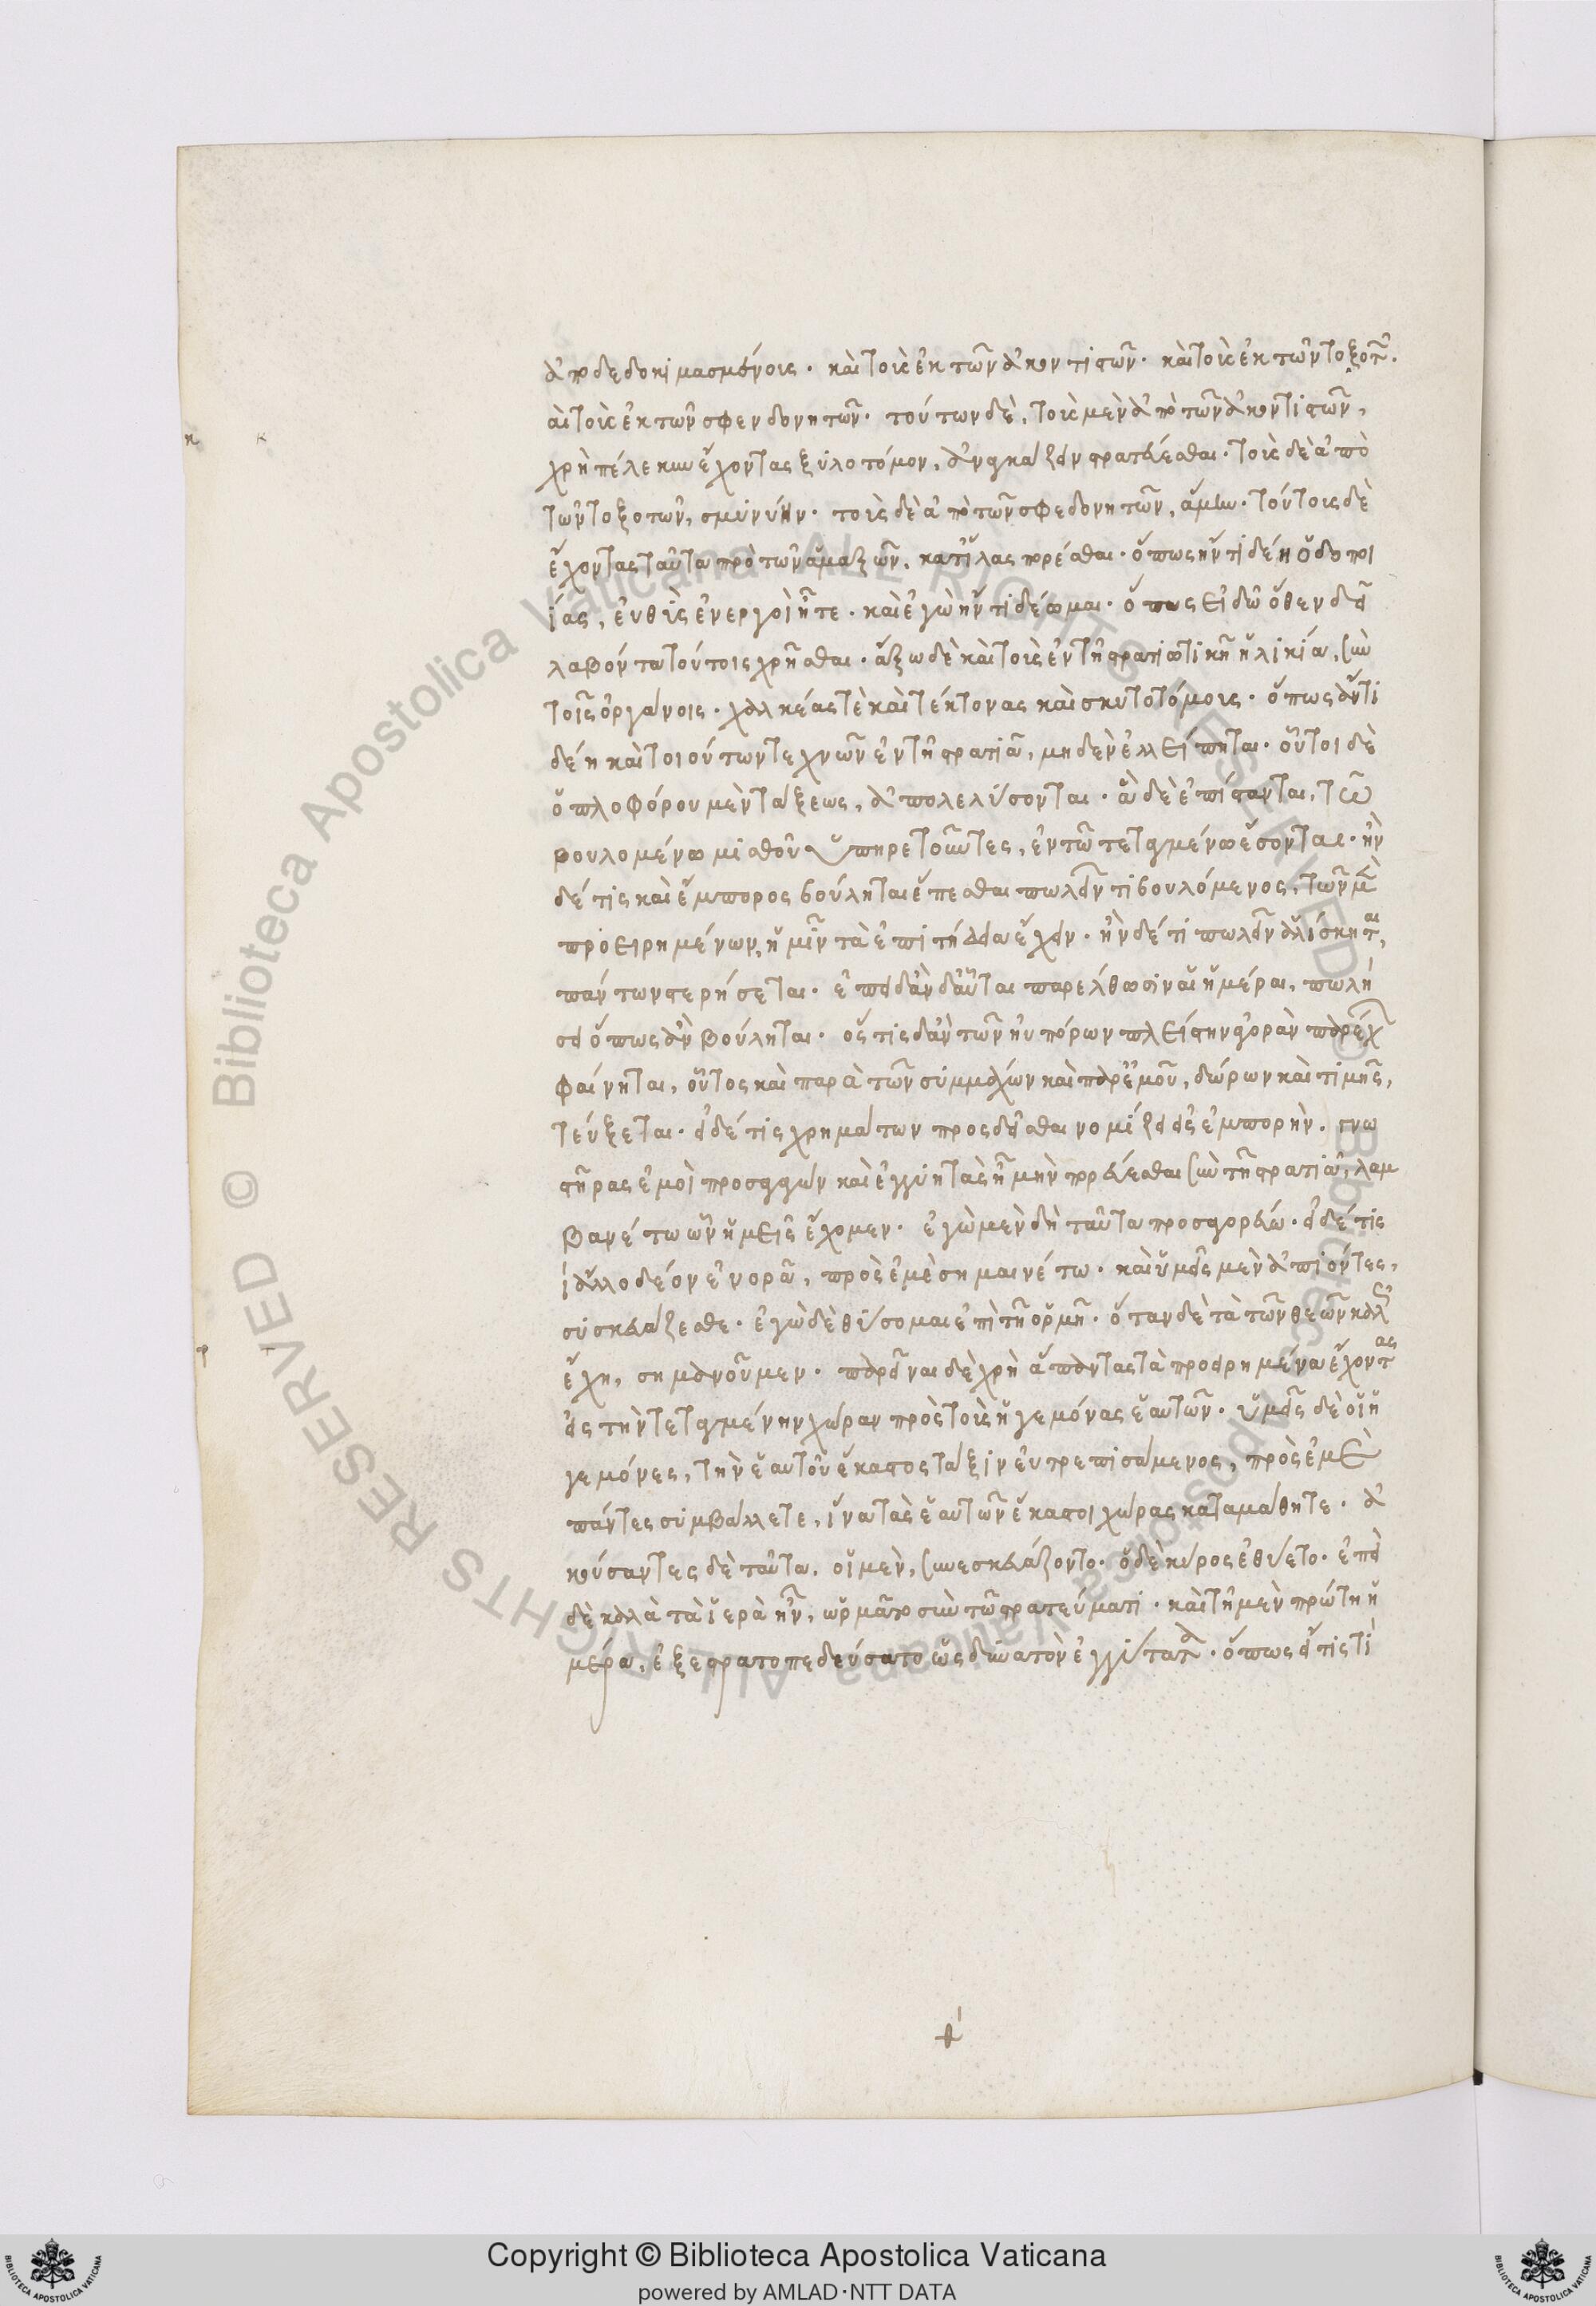 ἀποδεδοκιμασμένους· καὶ τοὺς ἐκ τῶν ἀκοντιστῶν· καὶ τοὺς ἐκ τῶν τοξοτῶν.
καὶ τοὺς ἐκ τῶν σφενδονητῶν· τούτων δὲ, τοὺς μὲν ἀπὸ τῶν ἀκοντιστῶν,
χρὴ πέλεκυν ἔχοντας ξυλοτόμον, ἀναγκάζειν στρατεύεσθαι· τοὺς δὲ ἀπὸ
τῶν τοξοτῶν, σμινύην· τοὺς δὲ ἀπὸ τῶν σφεδονητῶν, ἄμην· τούτους δὲ
ἔχοντας ταῦτα πρὸ τῶν ἁμαξῶν, κατ' ἴλας πορεύεσθαι· ὅπως ἤν τι δέῃ ὁδοποι
ίας, εὐθὺς ἐνεργοὶ ἦτε· καὶ ἐγὼ ἤν τι δέωμαι· ὅπως εἰδῶ ὅθεν δεῖ
λαβόντα τούτοις χρῆσθαι· ἄξω δὲ καὶ τοὺς ἐν τῇ στρατιωτικῇ ἡλικίᾳ, σὺν
τοῖς ὀργάνοις· χαλκέας τὲ καὶ τέκτονας καὶ σκυτοτόμους· ὅπως ἄν τι
δέῃ καὶ τοιούτων τεχνῶν ἐν τῇ στρατιᾷ, μηδὲν ἐλλείπηται· οὗτοι δὲ
ὁπλοφόρου μὲν τάξεως, ἀπολελύσονται· ἃ δὲ ἐπίστανται, τῷ
βουλομένῳ μισθοῦ ὑπηρετοῦντες, ἐν τῷ τεταγμένῳ ἔσονται· ἢν
δέ τις καὶ ἔμπορος βούληται ἕπεσθαι πωλεῖν τι βουλόμενος, τῶν μὲν
προειρημένων, ἡμῖν τὰ ἐπιτήδεια ἔχειν· ἢν δέ τι πωλεῖν ἁλίσκηται,
πάντων στερήσεται· ἐπειδὰν δ' αὗται παρέλθωσιν αἱ ἡμέραι, πωλή
σει ὅπως ἂν βούληται· ὅς τις δ' ἂν τῶν ἐμπόρων πλείστην ἀγορὰν παρέχων
φαίνηται, οὗτος καὶ παρὰ τῶν συμμάχων καὶ παρ' ἐμοῦ, δώρων καὶ τιμῆς,
τεύξεται· εἰ δέ τις χρημάτων προσδεῖσθαι νομίζει εἰς ἐμπορὴν. γνω
στῆρας ἐμοὶ προσαγαγὼν καὶ ἐγγυητὰς ἦ μὴν πορεύεσθαι σὺν τῇ στρατιᾷ, λαμ
βανέτω ὧν ἡμεῖς ἔχομεν· ἐγὼ μὲν δὴ ταῦτα προαγορεύω· εἰ δέ τις
τι ἄλλο δέον ἐνορᾷ, πρὸς ἐμὲ σημαινέτω· καὶ ὑμεῖς μὲν ἀπιόντες,
συσκευάζεσθε· ἐγὼ δὲ θύσομαι ἐπὶ τῇ ὁρμῇ· ὅταν δὲ τὰ τῶν θεῶν καλῶς
ἔχῃ, σημανοῦμεν· παρεῖναι δὲ χρὴ ἅπαντας τὰ προειρημένα ἔχοντας
εἰς τὴν τεταγμένην χώραν πρὸς τοὺς ἡγεμόνας ἑαυτῶν· ὑμεῖς δὲ οἱ ἡ
γεμόνες, τὴν ἑαυτοῦ ἕκαστος τάξιν εὐτρεπισάμενος, πρὸς ἐμὲ
πάντες συμβάλλετε, ἵνα τὰς ἑαυτῶν ἕκαστοι χώρας καταμάθητε· ἀ
κούσαντες δὲ ταῦτα, οἱ μὲν, συνεσκευάζοντο· ὁ δὲ κύρος ἐθύετο· ἐπεὶ
δὲ καλὰ τὰ ἱερὰ ἦν, ὡρμᾶτο σὺν τῷ στρατεύματι· καὶ τῇ μὲν πρώτῃ ἡ
μέρᾳ, ἐξεστρατοπεδεύσατο ὡς δυνατὸν ἐγγύτατα· ὅπως εἴ τις τι